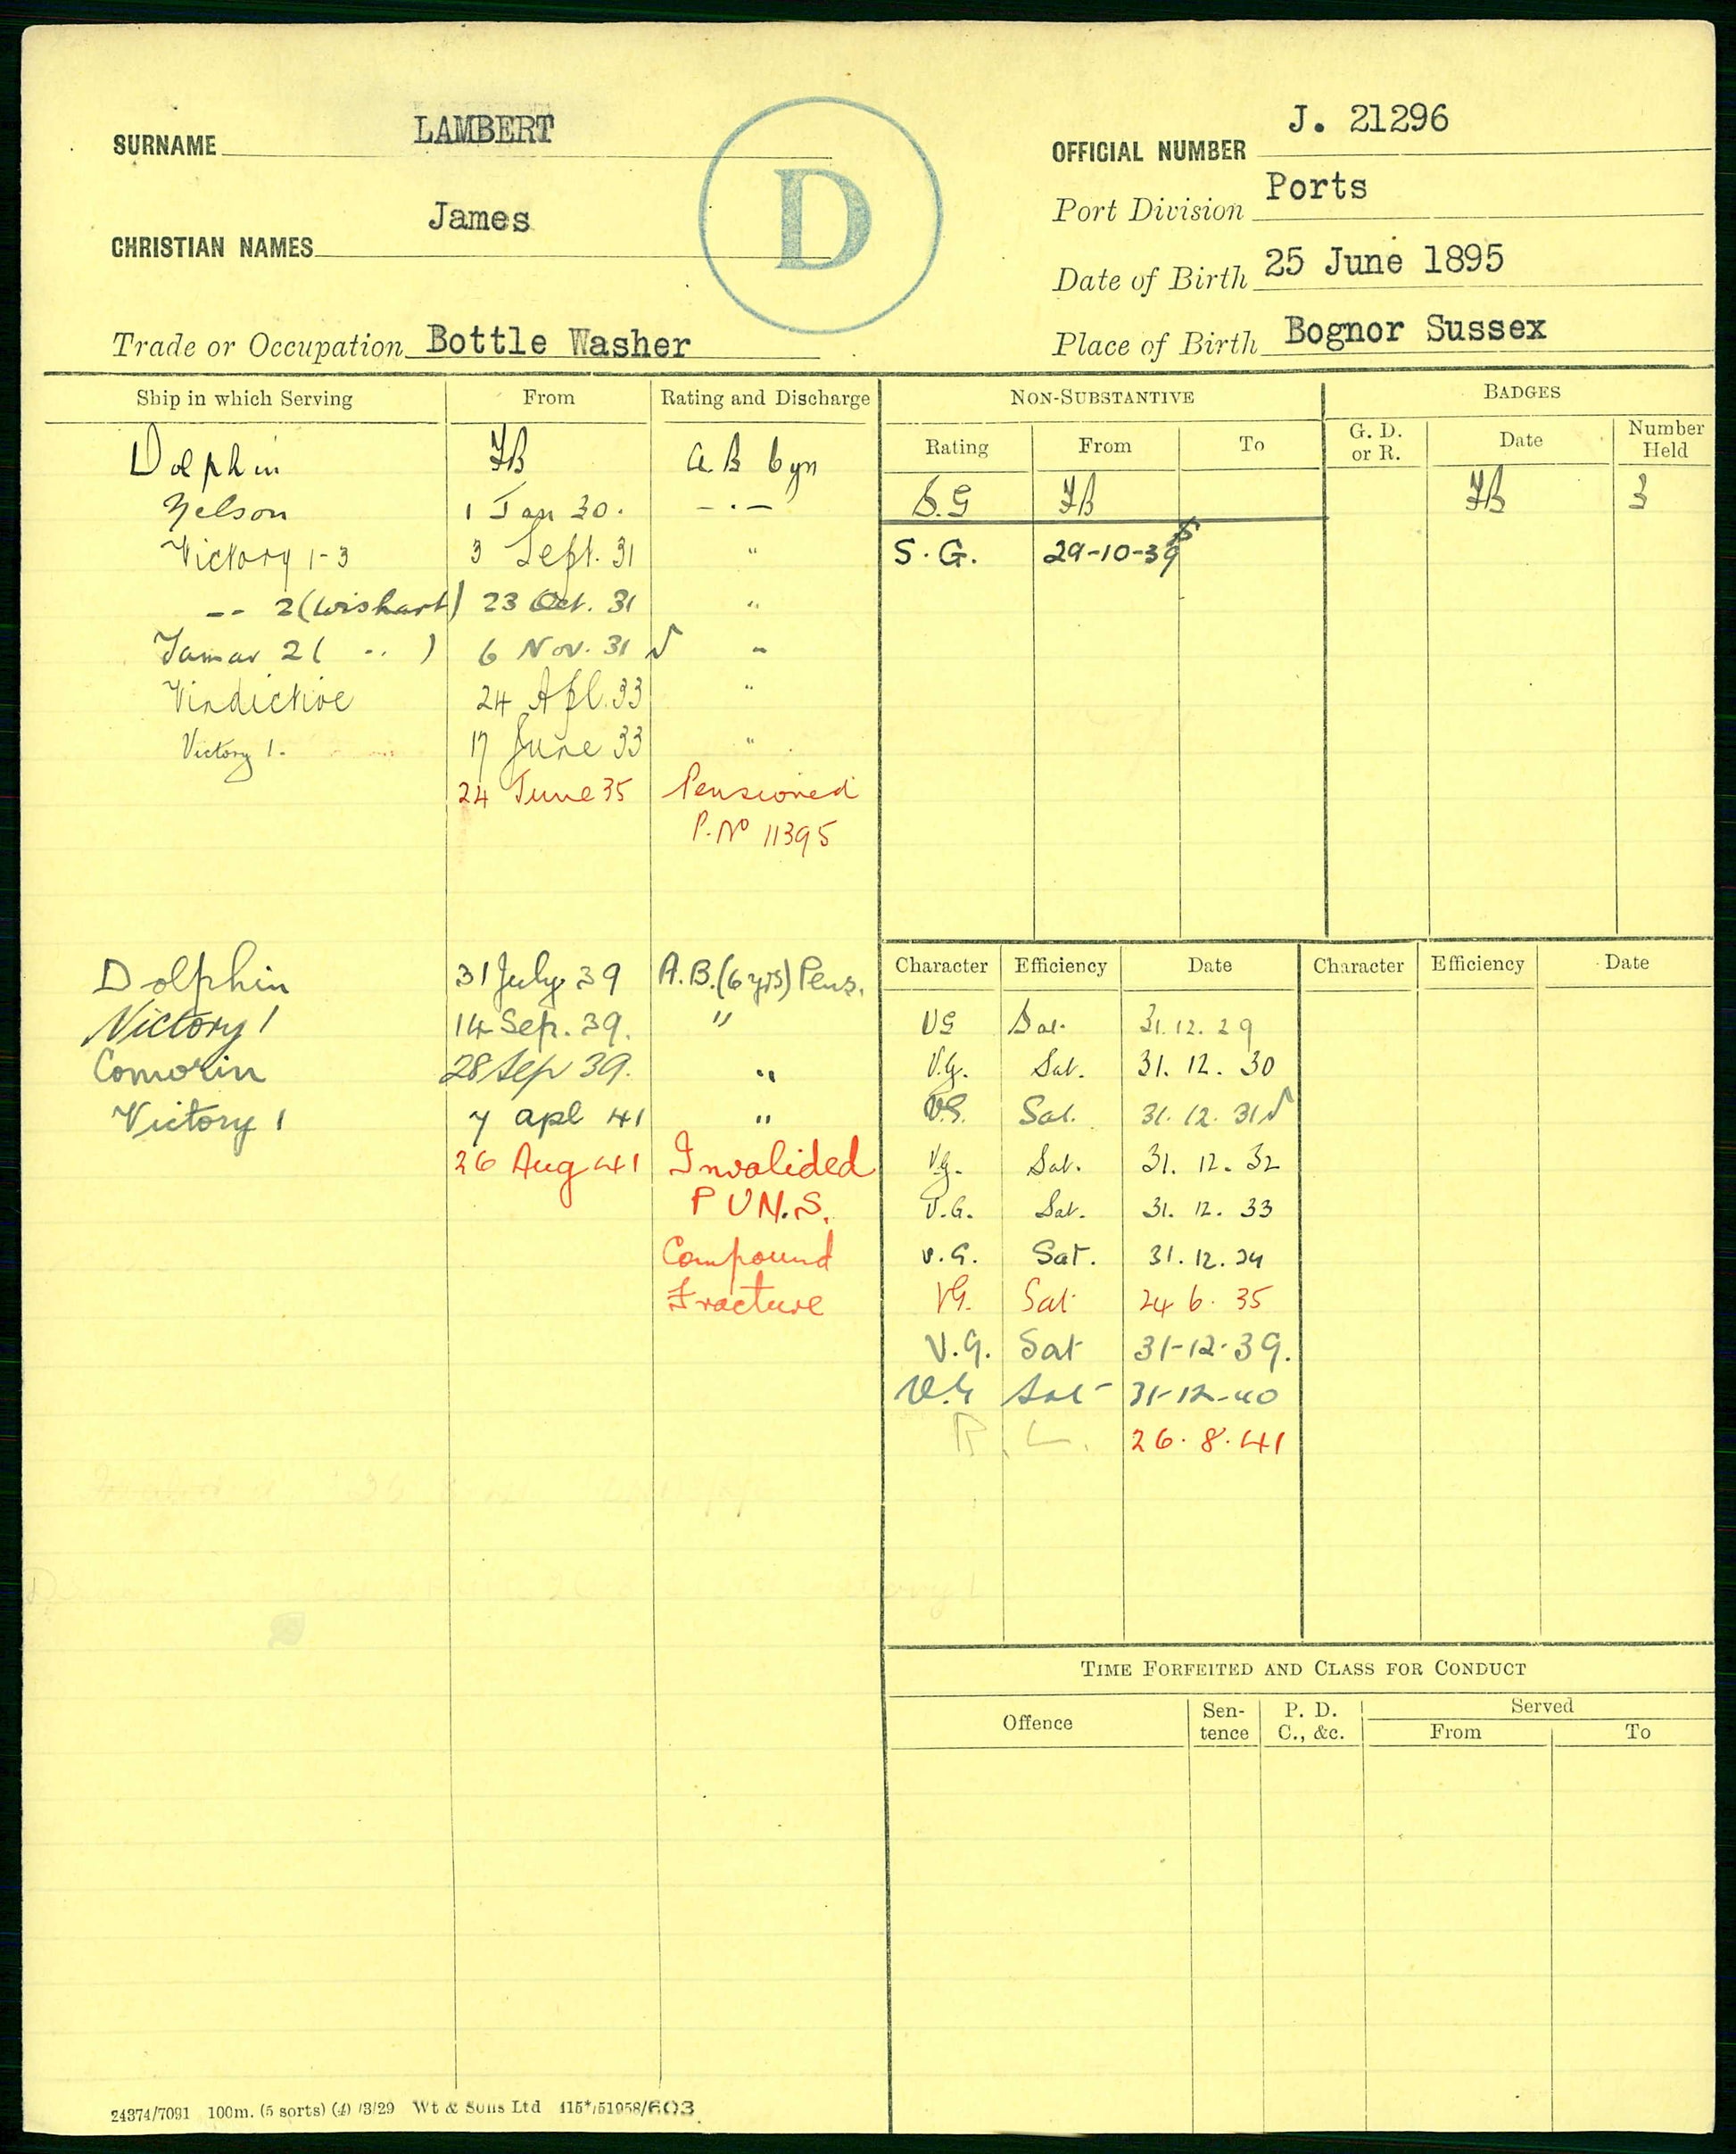 LAMBERT
SURNAME
D
J. 21296
OFFICIAL NUMBER
Ports
Port Division
James
CHRISTIAN NAMES
25 June 1895
Date of Birth
Trade or Occupation Bottle Washer
Place of Birth Bognor Sussex
Ship in which Serving From Rating and Discharge
Dolphin A.B 6yn
Nelson 1 Jan 30. – . –
Victory 1-3 3 Sept. 31 "
-- 2 (Wishart) 23 Oct. 31 "
Tamar 2 ( " ) 6 Nov. 31 "
Vindictive 24 Apl. 33 "
Victory 1. 17 June 33 "
24 June 35 Pensioned
P. No 11395
Dolphin 31 July 39 A.B. (6 yrs) Pens.
Victory 1 14 Sep. 39. "
Comorin 28 Sep 39. "
Victory 1 7 apl 41 "
26 Aug 41 Invalided
P U N. S.
Compound
Fracture
NON-SUBSTANTIVE
Rating From To
S.G
S.G. 29-10-39
BADGES
G. D. or R. Date Number Held
3
Character Efficiency Date Character Efficiency Date
VG Sat. 31.12.29
V.G. Sat. 31. 12. 30
V.G. Sat. 31. 12. 31
V.G. Sat. 31. 12. 32
V.G. Sat. 31. 12. 33
V.G. Sat. 31.12.34
VG. Sat 24. 6. 35
V.G. Sat 31-12-39.
V.G Sat 31-12-40
R. L. 26.8.41
TIME FORFEITED AND CLASS FOR CONDUCT
Offence Sen-tence P. D. C., &c. Served
From To
24374/7091 100m. (5 sorts) (4) /3/29 Wt & Sons Ltd 415*/51958/603